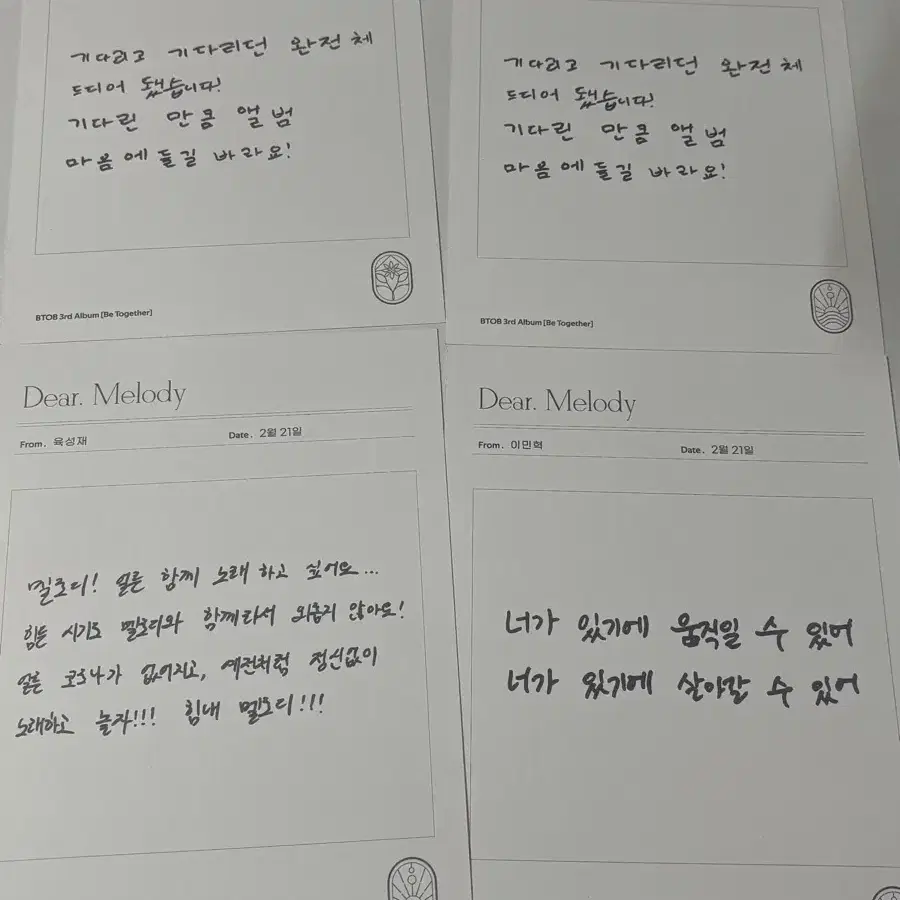 기다리고 기다리던 완전체
드디어 됐습니다!
기다린 만큼 앨범
마음에 들길 바라요!
BTOB 3rd Album [Be Together]
기다리고 기다리던 완전체
드디어 됐습니다!
기다린 만큼 앨범
마음에 들길 바라요!
BTOB 3rd Album [Be Together]
Dear. Melody
From. 육성재 Date. 2월 21일
멜로디! 얼른 함께 노래하고 싶어요...
힘든 시기도 멜로디와 함께라서 외롭지 않아요!
얼른 코로나가 없어지고, 예전처럼 정신없이
노래하고 놀자!!! 힘내 멜로디!!!
Dear. Melody
From. 이민혁 Date. 2월 21일
너가 있기에 움직일 수 있어
너가 있기에 살아갈 수 있어